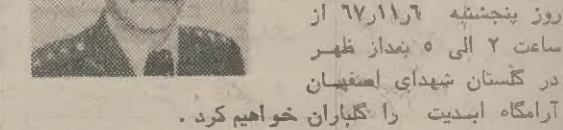 روز پنجشنبه ۶ر۱۱ر۶۷ از
ساعت ۲ الی ۵ بعداز ظهر
در گلستان شهدای اصفهان
آرامگاه ابدیت را گلباران خواهیم کرد .